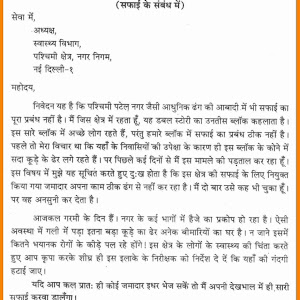 (सफाई के संबंध में)
सेवा में,
अध्यक्ष,
स्वास्थ्य विभाग,
पश्चिमी क्षेत्र, नगर निगम,
नई दिल्ली-१
महोदय,
निवेदन यह है कि पश्चिमी पटेल नगर जैसी आधुनिक ढंग की आबादी में भी सफाई का
पूरा प्रबंध नहीं है। मैं जिस क्षेत्र में रहता हूँ, यह डबल स्टोरी का उनतीस ब्लॉक कहलाता है।
इस सारे ब्लॉक में अच्छे लोग रहते हैं, परंतु हमारे ब्लॉक में सफाई का प्रबंध ठीक नहीं है।
पहले तो मेरा विचार था कि यहाँ के निवासियों की उपेक्षा के कारण ही इस ब्लॉक के कोने में
सदा कूड़े के ढेर लगे रहते हैं। पर पिछले कई दिनों से मैं इस मामले की पड़ताल कर रहा हूँ।
इस विषय में मुझे यह सूचित करते हुए दुःख होता है कि इस क्षेत्र की सफाई के लिए नियुक्त
किया गया जमादार अपना काम ठीक ढंग से नहीं कर रहा है। मैं दो बार उसे कह भी चुका हूँ।
पर वह अनसुना कर देता है।
आजकल गरमी के दिन हैं। नगर के कई भागों में हैजे का प्रकोप हो रहा है। ऐसी
अवस्था में गली में पड़ा इतना बड़ा कूड़े का ढेर अनेक बीमारियों का घर है। न जाने इसमें
कितने भयानक रोगों के कीड़े पल रहे होंगे। इस क्षेत्र के लोगों के स्वास्थ्य की चिंता करते
हुए आप कृपा करके शीघ्र ही इस इलाके के निरीक्षक को निर्देश दें कि यहाँ की गंदगी
हटाई जाए।
यदि आप कल प्रातः ही कोई जमादार इधर भेज सकें तो मैं अपनी देखभाल में ही सारी
सफाई करवा डालूँगा।